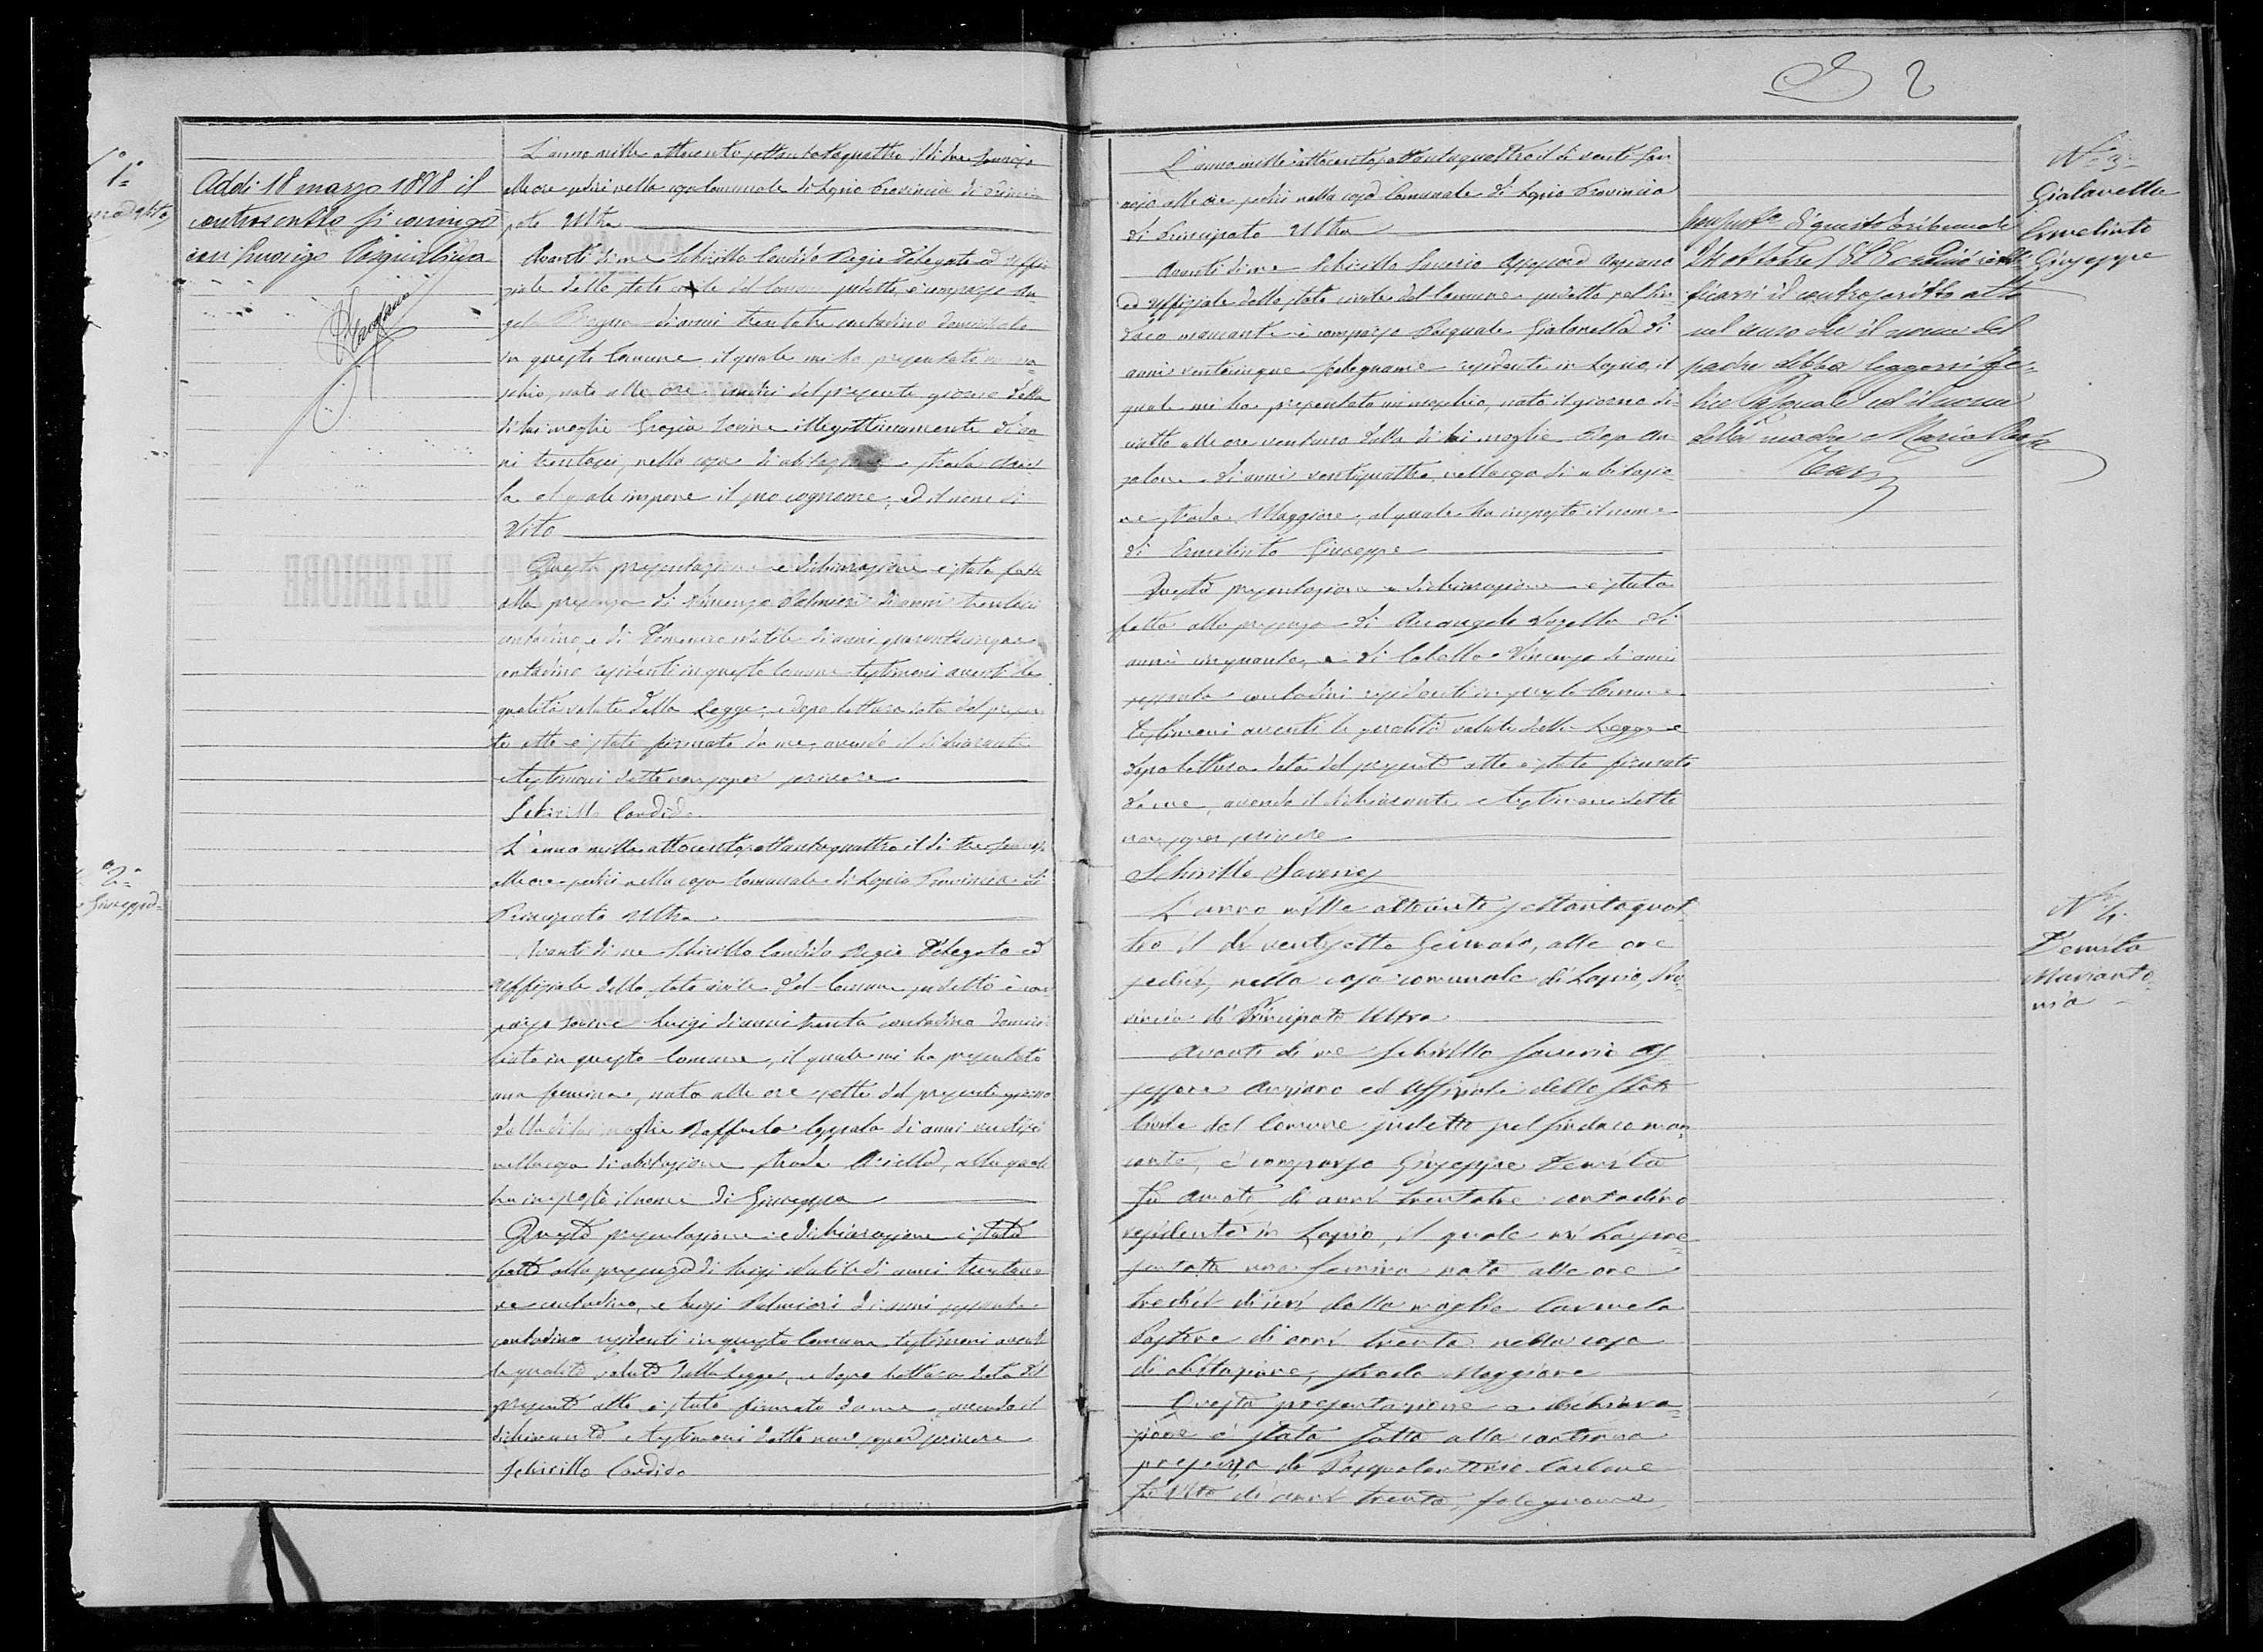 2
1°
Addì 18 marzo 1898 il
controscritto si coniugò
con
L'anno mille ottocento settantaquattro il dì due Gennajo
alle ore sedici nella casa Comunale di Lapio Provincia di Princi
pato Ultra
Avanti di me Schirillo Candido Regio Delegato ed Uffi
ziale dello stato civile del Comune sudetto, è comparso An
gelo di anni trentatre contadino domiciliato
in questo Comune il quale mi ha presentato un ma
schio, nato alle ore undici del presente giorno dalla
di lui moglie Grazia Iovine illegittimamente di an
ni trentasei, nella casa di abitazione strada
la al quale impone il suo cognome, ed il nome di
Vito
Questa presentazione e dichiarazione è stata fatta
alla presenza di Vincenzo Palmieri di anni trentasei
contadino, e di Domenico di anni quarantacinque
contadino residenti in questo Comune testimoni aventi le
qualità volute dalla Legge, e dopo lettura data del presen
te atto è stato firmato da me, avendo il dichiarante
e testimoni detto non saper scrivere
Schirillo Candido
2°
Giuseppa
L'anno mille ottocento settantaquattro il dì tre Gennajo
alle ore sedici nella casa Comunale di Lapio Provincia di
Principato Ultra
Avanti di me Schirillo Candido Regio Delegato ed
Uffiziale dello stato civile del Comune sudetto è com
parso Iovine Luigi di anni trenta contadino domici
liato in questo Comune, il quale mi ha presentato
una femina, nata alle ore sette del presente giorno
dalla di lui moglie Raffaela di anni ventisei
nella casa di abitazione strada Ariella, alla quale
ha imposto il nome di Giuseppa
Questa presentazione e dichiarazione è stata
fatta alla presenza di Luigi di anni trentano
ve contadino, e Luigi Palmieri di anni sessanta
contadino residenti in questo Comune testimoni aventi
le qualità volute dalla Legge, e dopo lettura data del
presente atto è stato firmato da me, avendo il
dichiarante e testimoni detto non saper scrivere
Schirillo Candido
N° 3
Gialanella
Ermelinto
Giuseppe
L'anno mille ottocento settantaquattro il dì venti Gen
najo alle ore sedici nella casa Comunale di Lapio Provincia
di Principato Ultra
Avanti di me Schirillo Saverio Assessore Anziano
ed Uffiziale dello stato civile del Comune sudetto pel Sin
daco mancante è comparso Pasquale Gialanella di
anni venticinque falegname residente in Lapio, il
quale mi ha presentato un maschio, nato il giorno di
ciotto alle ore ventuno dalla di lui moglie Rosa An
zalone di anni ventiquattro, nella casa di abitazio
ne strada Maggiore, al quale ha imposto il nome
di Ermelinto Giuseppe
Questa presentazione e dichiarazione è stata
fatta alla presenza di Arcangelo di
anni cinquanta, e di Vincenzo di anni
sessanta contadini residenti in questo Comune
testimoni aventi le qualità volute dalla Legge e
dopo lettura data del presente atto è stato firmato
da me, avendo il dichiarante e testimoni detto
non saper scrivere
Schirillo Saverio
di questo Tribunale
24 ottobre 1898 ordinò retti
ficarsi il controscritto atto
nel senso che il nome del
padre debba leggersi Fe-
lice Pasquale ed il nome
della madre Maria Rosa
N° 4
Demita
Marianto
nia
L'anno mille ottocento settantaquat
tro il dì ventisette Gennaio, alle ore
sedici, nella casa comunale di Lapio, Pro
vincia di Principato Ultra
Avanti di me Schirillo Saverio As
sessore Anziano ed Uffiziale dello Stato
Civile del Comune sudetto pel Sindaco man
cante, è comparso Giuseppe Demita
fu Amato di anni trentatre contadino
residente in Lapio, il quale mi ha pre
sentata una femina nata alle ore
tredici di ieri dalla moglie Carmela
di anni trenta nella casa
di abitazione, strada Maggiore
Questa presentazione e dichiara
zione è stata fatta alla continua
presenza di Pasqualantonio Carbone
fu Vito di anni trenta, falegname